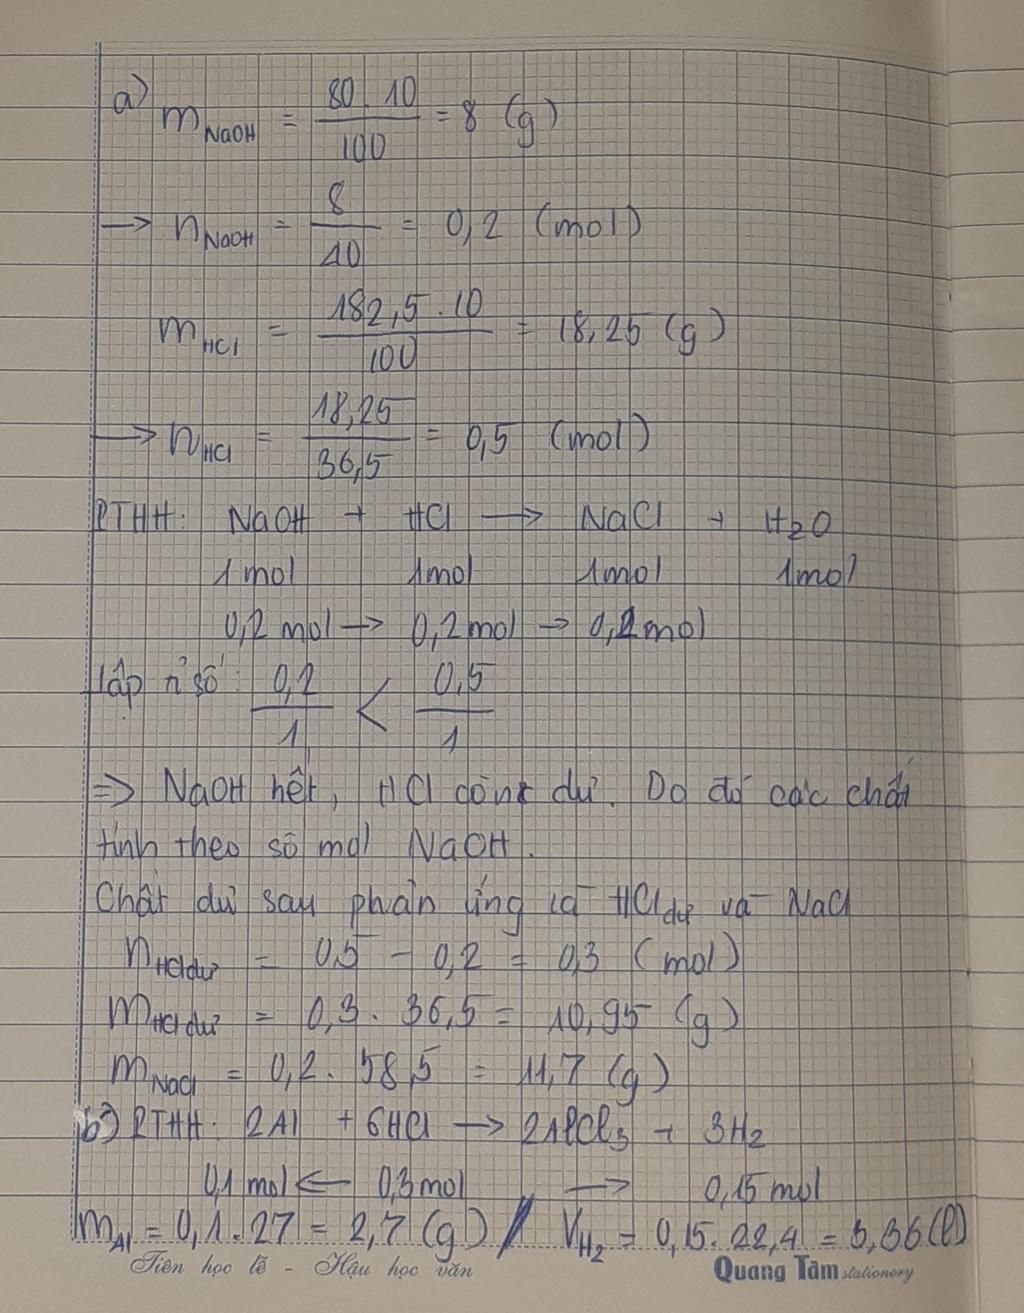 a) m NaOH = 80.10/100 = 8 (g)
→ n NaOH = 8/40 = 0,2 (mol)
m HCl = 182,5.10/100 = 18,25 (g)
→ n HCl = 18,25/36,5 = 0,5 (mol)
PTHH: NaOH + HCl → NaCl + H2O
1mol 1mol 1mol 1mol
0,2 mol → 0,2 mol → 0,2 mol
Lập tỉ số: 0,2/1 < 0,5/1
=> NaOH hết, HCl còn dư. Do đó các chất
tính theo số mol NaOH.
Chất dư sau phản ứng là HCl dư và NaCl
n HCl dư = 0,5 - 0,2 = 0,3 (mol)
m HCl dư = 0,3. 36,5 = 10,95 (g)
m NaCl = 0,2. 58,5 = 11,7 (g)
b) PTHH: 2Al + 6HCl → 2AlCl3 + 3H2
0,1 mol ← 0,3 mol → 0,15 mol
m Al = 0,1. 27 = 2,7 (g) / V H2 = 0,15. 22,4 = 3,36 (l)
Tiên học lễ - Hậu học văn
Quang Tâm stationery